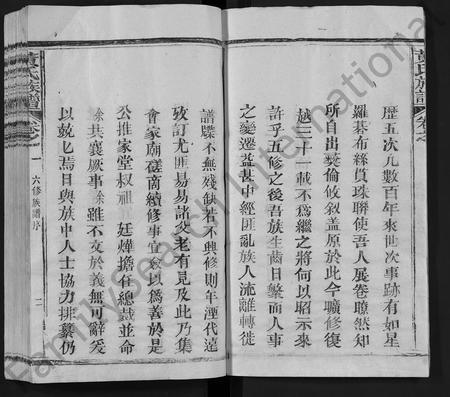 黄氏族譜
歷五次凡數百年來世次事跡有如星
羅碁布絲貫珠聯使吾人展卷瞭然知
所自出彝倫攸敘蓋原於此今曠修復
越三十一載不為繼之將何以昭示來
許乎五修之後吾族生齒日繁而人事
之變遷益甚中經匪亂族人流離轉徙
譜牒不無殘缺若不興修則年湮代遠
攷訂尤匪易易諸父老有見及此乃集
會家廟磋商續修事宜僉以為善於是
公推家堂叔祖廷燁擔任總裁並命
余共襄厥事余雖不文於義無可辭爰
以兢匕焉日與族中人士協力排纂仍
黄氏族譜
卷之一
六修族譜序
二
FamilySearch International